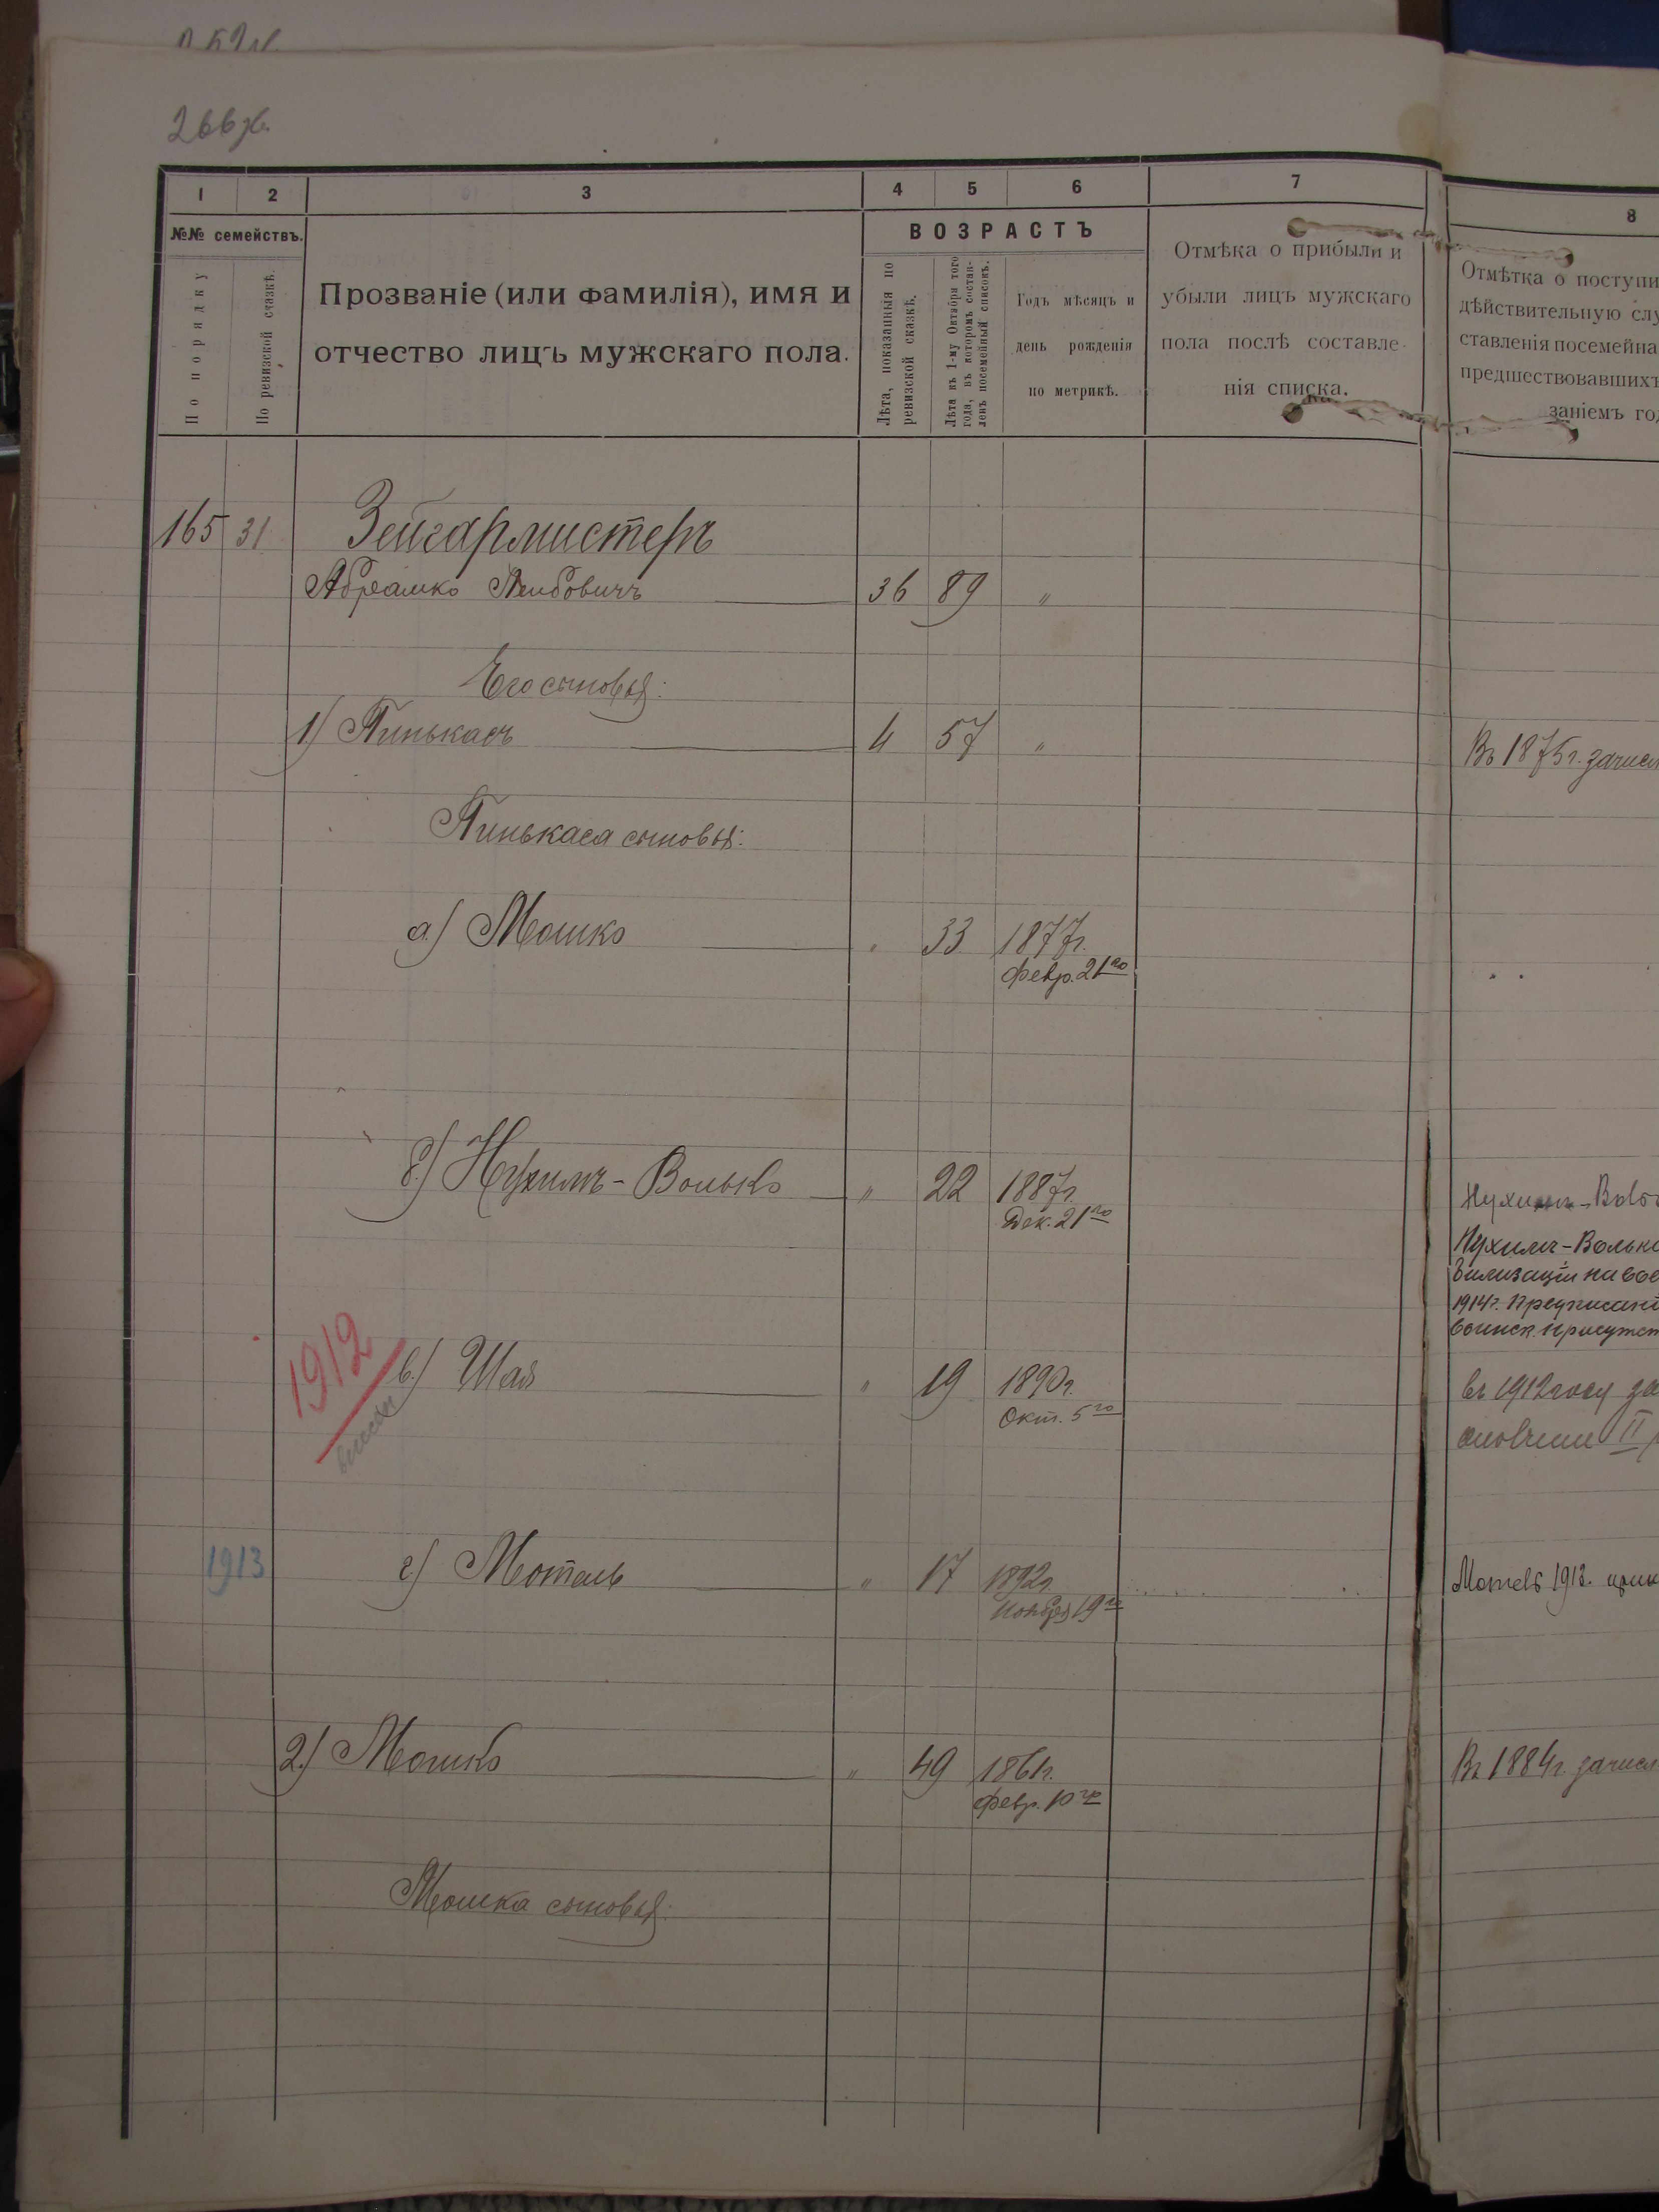 266 об.
1 2 3 4 5 6 7 8
№№ семействъ.
По порядку
По ревизской сказкѣ.
Прозваніе (или фамилія), имя и
отчество лицъ мужскаго пола.
ВОЗРАСТЪ
Лѣта, показанныя по
ревизской сказкѣ.
Лѣта къ 1-му Октября того
года, въ которомъ состав-
ленъ посемейный списокъ.
Годъ мѣсяцъ и
день рожденія
по метрикѣ.
Отмѣка о прибыли и
убыли лицъ мужскаго
пола послѣ составле-
нія списка.
Отмѣтка о поступи
дѣйствительную слу
ставленія посемейна
предшествовавшихъ
заніемъ год
165 31 Зейгармистеръ
Абрамко Лейбовичъ 36 89 "
Его сыновья:
1) Пинькасъ 4 57 " Въ 1875г. зачисл
Пинькаса сыновья:
а) Мошко " 33 1877г.
Февр. 21го
б) Нухимъ-Волько " 22 1887г.
Дек. 21го
Нухимъ-Воль
Нухимъ-Волько
билизаціи на вое
1914г. Предписані
воинск. присутст
1912 в) Шая " 19 1890г.
Окт. 5го
въ 1912 году за
ополченіе II р
1913 г) Мотель " 17 1892г.
Ноября 19го
Мотель 1913. при
2) Мошко " 49 1861г.
Февр. 10го
Въ 1884г. зачисл
Мошка сыновья: